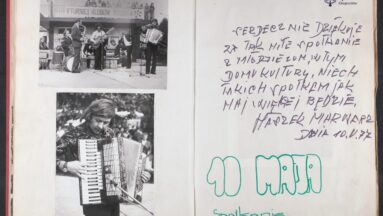 V TURNIEJ KLUBÓW
SERDECZNIE DZIĘKUJĘ
ZA TAK MIŁE SPOTKANIE
Z MŁODZIEŻOM, W TYM
DOMU KULTURY, NIECH
TAKICH SPOTKAŃ JAK
NAJWIĘCEJ BĘDZIE,
DNIA 10.V.77
10 MAJA
Spotkanie